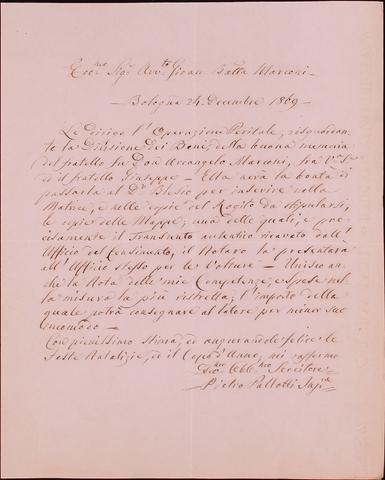 Ecc.mo Sig.r Avv.to Gioan Batta Marconi —
Bologna 24. Decembre 1869 —
Le dirigo l'Operazione Peritale, risguardan-
te la Divisione dei Beni, della buona memoria
del fratello fu Don Arcangelo Marconi, fra V.S.
ed il fratello Giuseppe — Ella avrà la bontà di
passarla al D.r per inserire nella
Matrice, e nelle copie del Rogito da stipularsi,
le copie delle Mappe; una delle quali, e pre-
cisamente il Transunto autentico ricavato dall'
Ufficio del Censimento, il Notaro la presenterà
all'Ufficio stesso per le Volture — Unisco an-
che la Nota delle mie Competenze, e Spese nel
la misura la più ristretta; l'importo della
quale potrà consegnare al latore per minor suo
incomodo —
Con pienissima stima, ed augurandole felice le
Feste Natalizie, ed il Capo d'Anno, mi raffermo
Obb.mo Servitore
Pietro Pallotti Ing.re